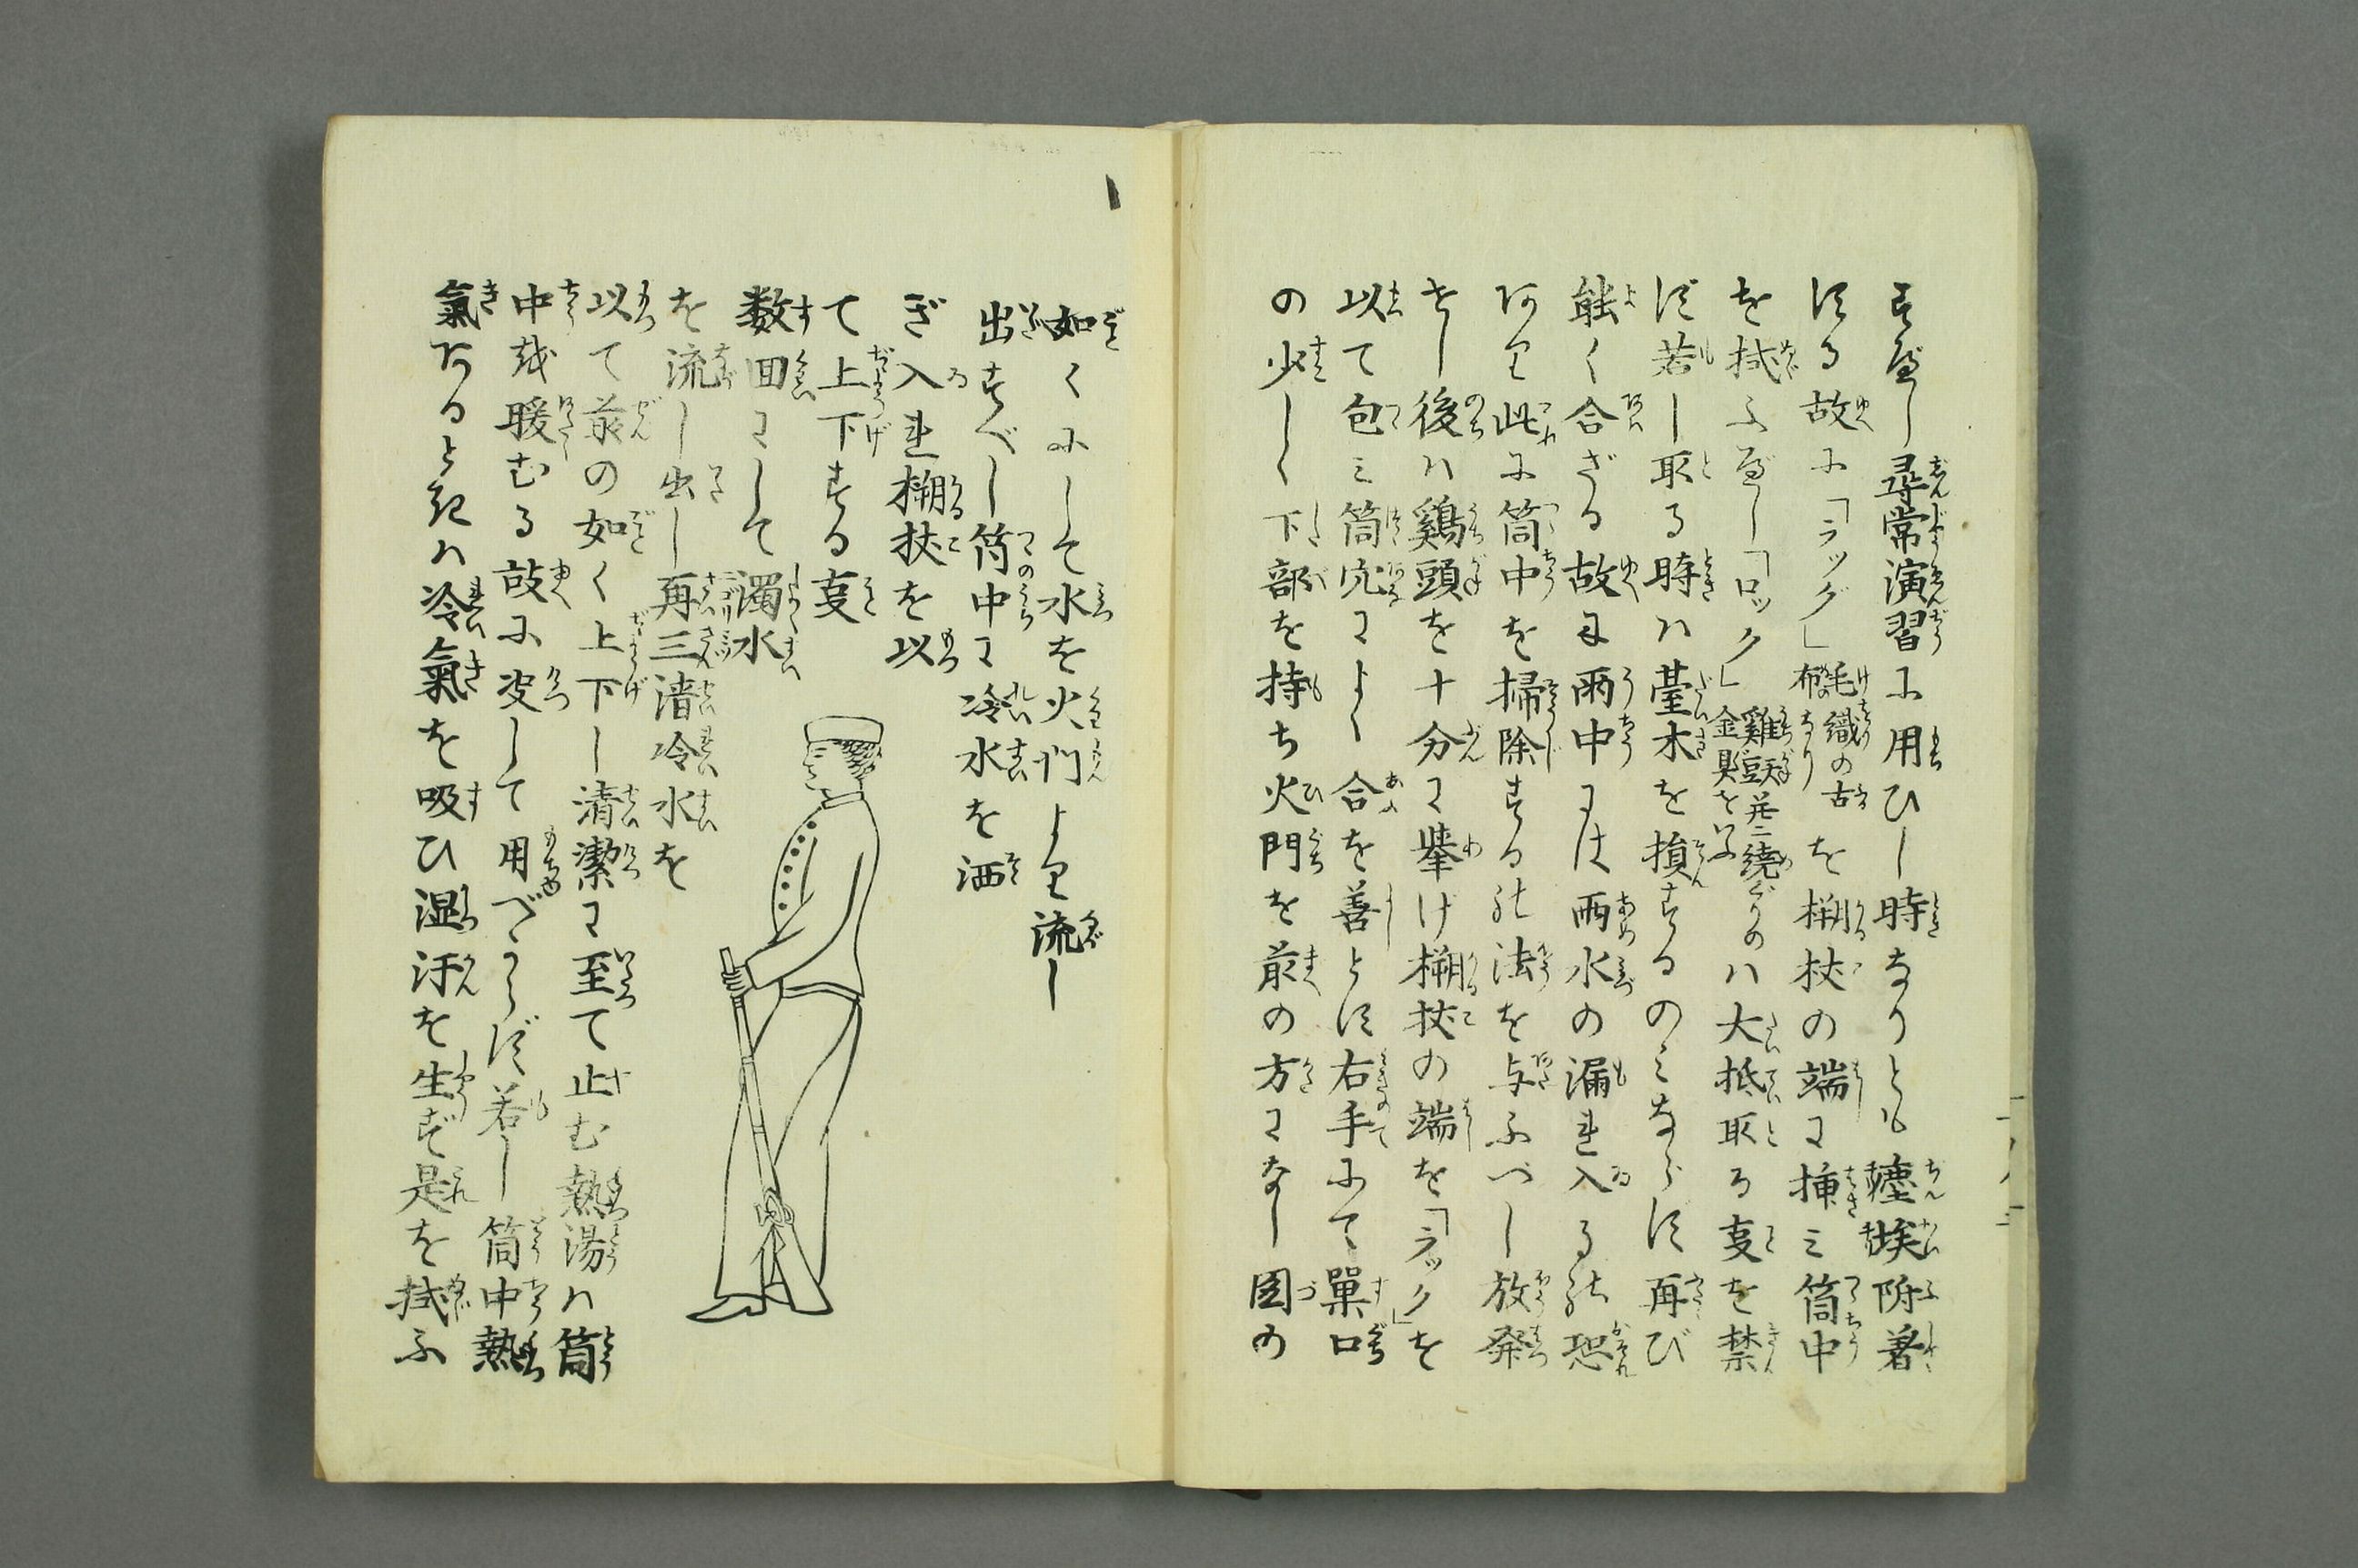 すべし尋常演習に用ひし時なりとも塵埃附着
する故に「ラッグ」毛織の古布なりを槊杖の端に挿ミ筒中
を拭ふべし「ロック」雞頭并ニ繞りの金具をいふハ大抵取る事を禁
ず若し取る時ハ臺木を損するのミならず再び
能く合ざる故に雨中にハ雨水の漏れ入るの恐
あり此に筒中を掃除するの法を与ふべし放発
せし後ハ鶏頭を十分に挙け槊杖の端を「ラック」を
以て包ミ筒穴によく合を善とす右手にて巣口
の少しく下部を持ち火門を前の方になし圖の
如くにして水を火門より流し
出すべし筒中に冷水を洒
ぎ入れ槊杖を以
て上下する事
数回にして濁水
を流し出し再三清冷水を
以て前の如く上下し清潔に至て止む熱湯ハ筒
中を暖むる故に决して用べからず若し筒中熱
氣あるときハ冷氣を吸ひ湿汗を生ず是を拭ふ